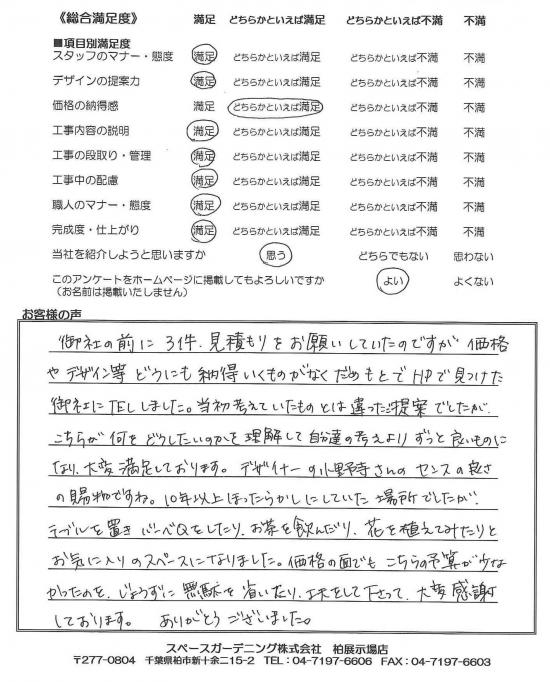 《総合満足度》 満足 どちらかといえば満足 どちらかといえば不満 不満
■項目別満足度
スタッフのマナー・態度 満足 どちらかといえば満足 どちらかといえば不満 不満
デザインの提案力 満足 どちらかといえば満足 どちらかといえば不満 不満
価格の納得感 満足 どちらかといえば満足 どちらかといえば不満 不満
工事内容の説明 満足 どちらかといえば満足 どちらかといえば不満 不満
工事の段取り・管理 満足 どちらかといえば満足 どちらかといえば不満 不満
工事中の配慮 満足 どちらかといえば満足 どちらかといえば不満 不満
職人のマナー・態度 満足 どちらかといえば満足 どちらかといえば不満 不満
完成度・仕上がり 満足 どちらかといえば満足 どちらかといえば不満 不満
当社を紹介しようと思いますか 思う どちらでもない 思わない
このアンケートをホームページに掲載してもよろしいですか よい よくない
（お名前は掲載いたしません）
お客様の声
御社の前に 3件、見積もりをお願いしていたのですが 価格
やデザイン等 どうにも納得いくものがなくだめもとでHPで見つけた
御社にTELしました。当初考えていたものとは違ったご提案でしたが、
こちらが何をどうしたいのかを理解して自分達の考えよりずっと良いものに
なり、大変満足しております。デザイナーの小野寺さんのセンスの良さ
の賜物ですね。10年以上ほったらかしにしていた場所でしたが、
テーブルを置きバーベQをしたり、お茶を飲んだり、花を植えてみたりと
お気に入りのスペースになりました。価格の面でもこちらの予算が少な
かったのを、じょうずに無駄を省いたり、工夫をして下さって、大変感謝
しております。 ありがとうございました。
スペースガーデニング株式会社 柏展示場店
〒277-0804 千葉県柏市新十余二15-2 TEL：04-7197-6606 FAX：04-7197-6603